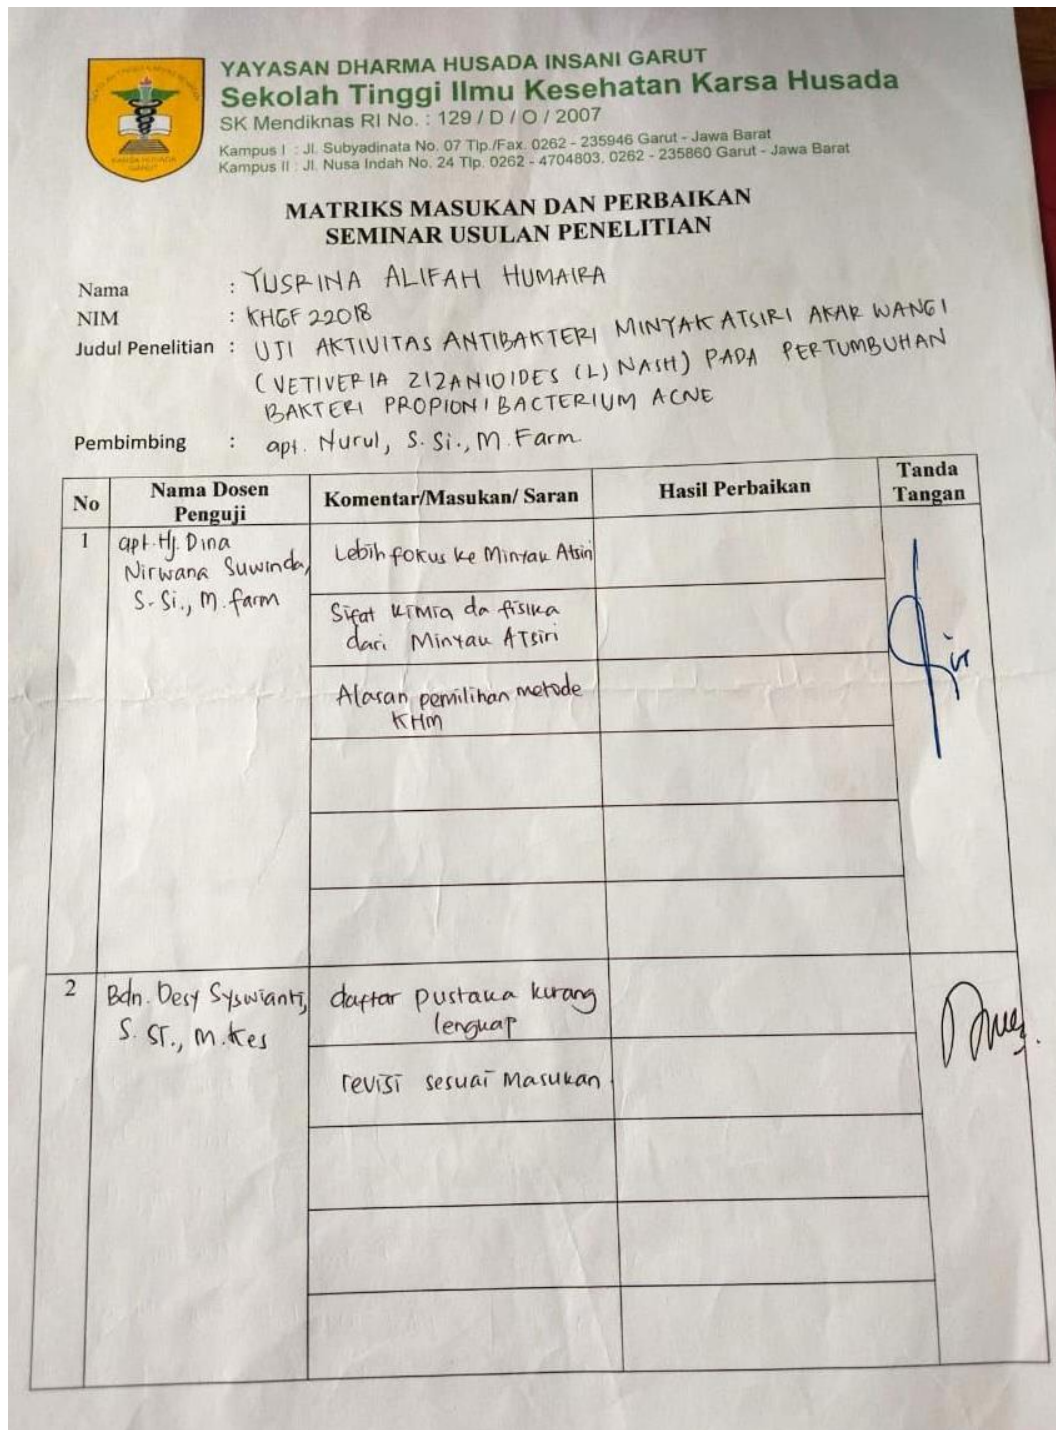 YAYASAN DHARMA HUSADA INSANI GARUT
Sekolah Tinggi Ilmu Kesehatan Karsa Husada
SK Mendiknas RI No. : 129 / D / O / 2007
Kampus I : Jl. Subyadinata No. 07 Tlp./Fax. 0262 - 235946 Garut - Jawa Barat
Kampus II : Jl. Nusa Indah No. 24 Tlp. 0262 - 4704803, 0262 - 235860 Garut - Jawa Barat
KARSA HUSADA
GARUT
MATRIKS MASUKAN DAN PERBAIKAN
SEMINAR USULAN PENELITIAN
Nama : YUSRINA ALIFAH HUMAIRA
NIM : KHGF 22018
Judul Penelitian : UJI AKTIVITAS ANTIBAKTERI MINYAK ATSIRI AKAR WANGI
(VETIVERIA ZIZANIOIDES (L) NASH) PADA PERTUMBUHAN
BAKTERI PROPIONIBACTERIUM ACNE
Pembimbing : apt. Nurul, S.Si., M.Farm.
No
Nama Dosen
Penguji
Komentar/Masukan/ Saran
Hasil Perbaikan
Tanda
Tangan
1
apt. Hj. Dina
Nirwana Suwinda,
S.Si., M.farm
Lebih fokus ke Minyak Atsiri
Sifat kimia da fisika
dari Minyak Atsiri
Alasan pemilihan metode
KHM
2
Bdn. Desy Syswianti,
S.ST., M.Kes
daftar pustaka kurang
lengkap
revisi sesuai Masukan